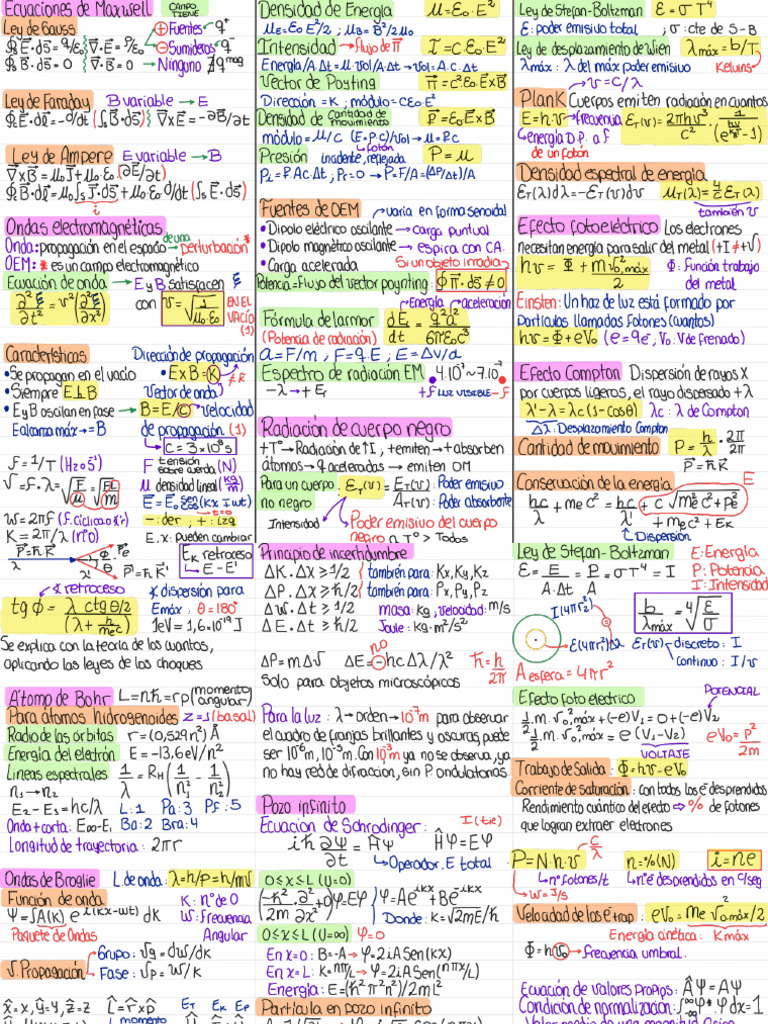 Ecuaciones de Maxwell CAMPO TIENE
Ley de Gauss ⊕ Fuentes q⁺
∮E·ds = q/ε₀ ∇·E = ρ/ε₀ ⊖ Sumideros q⁻
∮B·ds = 0 ∇·B = 0 → Ninguno ∄q mag
Ley de Faraday B variable → E
∇xE = -∂B/∂t
Ley de Ampere E variable → B
∇xB = μ₀J + μ₀·ε₀ (∂E/∂t)
∮B·dl = μ₀∫J·ds + μ₀·ε₀ d/dt (∫E·ds)
i
Ondas electromagnéticas
Onda: propagación en el espacio de una perturbación*
OEM: * es un campo electromagnético
Ecuación de onda → E y B satisfacen ξ
∂²ξ/∂t² = v²(∂²ξ/∂x²) con v = √(1/μ₀·ε₀) EN EL VACÍO (1)
Características Dirección de propagación
• Se propagan en el vacío • E x B = K
• Siempre E⊥B Vector de onda
• E y B oscilan en fase → B = E/c → velocidad
E alcanza máx → = B de propagación (1)
c = 3×10⁸ m/s
f = 1/T (Hz o s⁻¹) F tensión sobre cuerda (N)
v = λ·f = √(F/μ) = √(FL/m) μ densidad lineal (kg/m)
E = E₀ sen(Kx ∓ wt)
w = 2πf (f. cíclica o 2π) - : der ; + : izq
K = 2π/λ (nº o) E.x: Pueden cambiar
P = ħ·K Pe
λ P' = ħ·K' E_K retroceso → E - E'
ϰ retroceso ϰ dispersión para
tg φ = λ ctg θ/2 / (λ + h/mec) Emáx: θ = 180°
1eV = 1,6×10⁻¹⁹ J
Se explica con la teoría de los cuantos,
aplicando las leyes de los choques
Átomo de Bohr L = nħ = rp (momento angular)
Para átomos hidrogenoides z = 1 (basal)
Radio de las órbitas r = (0,529 n²) Å
Energía del electrón E = -13,6 eV/n²
Lineas espectrales 1/λ = R_H (1/n₁² - 1/n₂²)
n₁ → n₂
E₂ - E₁ = hc/λ L: 1 Pa: 3 Pf: 5
Onda + corta: E∞ - E₁ Ba: 2 Bra: 4
Longitud de trayectoria: 2πr
Ondas de Broglie L. de onda: λ = h/p = h/mv
Función de onda K: nº de O
Ψ = ∫A(K) e^i(kx-wt) dK w: frecuencia
Paquete de Ondas Angular
v. Propagación Grupo: vg = dw/dK
Fase: vp = w/K
x̂ = x, ŷ = y, ẑ = z L̂ = r̂ x p̂ E_T E_K E_P
L momento
Densidad de Energía μ = ε₀·E²
μE = ε₀E²/2 ; μB = B²/2μ₀
Intensidad → Flujo de Π I = c·ε₀·E²
Energía/A·Δt = μ·Vol/A·Δt → Vol = A·c·Δt
Vector de Poyting Π = c²ε₀ E x B
Dirección = K ; módulo = cε₀·E²
Densidad de Cantidad de movimiento P = ε₀ E x B
módulo = μ/c (E = P·c)/Vol → μ = P·c
fotón
Presión incidente, reflejada P = μ
Pi = P·Ac·Δt ; Pr = 0 → P = F/A = (ΔP/Δt)/A
Fuentes de OEM varia en forma senoidal
• Dipolo eléctrico oscilante → carga puntual
• Dipolo magnético oscilante → espira con CA
• Carga acelerada Si un objeto irradia
Potencia = Flujo del vector poynting: ∮Π·ds ≠ 0
Energía aceleración
Fórmula de larmor dE/dt = q²a²/6πε₀c³
(Potencia de radiación)
a = F/m ; F = q·E ; E = Δv/d
Espectro de radiación EM • 4·10⁻⁷ ~ 7·10⁻⁷
-λ → + Er +f LUZ VISIBLE -f
Radiación de cuerpo negro
+T° → Radiación de ↑I, +emiten → +absorben
átomos → q aceleradas → emiten OM
Para un cuerpo no negro ε_T(v) = E_T(v): Poder emisivo / A_T(v): Poder absorbente
Intensidad Poder emisivo del cuerpo
negro a T° > Todos
Principio de incertidumbre
ΔK·ΔX ≥ 1/2 también para: Kx, Ky, Kz
ΔP·ΔX ≥ ħ/2 también para: Px, Py, Pz
Δw·Δt ≥ 1/2 masa: kg, velocidad: m/s
ΔE·Δt ≥ ħ/2 Joule: kg·m²/s²
no
ΔP = mΔv ΔE = ⊖hcΔλ/λ² ħ = h/2π
Solo para objetos microscópicos
Para la luz: λ → orden → 10⁻⁷m para observar
el cuadro de franjas brillantes y oscuras, puede
ser 10⁻⁶m, 10⁻⁵m. Con 10⁻³m ya no se observa, ya
no hay red de difracción, sin P. ondulatorias.
Pozo infinito
Ecuación de Schrodinger: I (tie)
iħ ∂Ψ/∂t = ĤΨ ĤΨ = EΨ
Operador. E total
0≤x≤L (U=0)
(-ħ²/2m · ∂²/∂x² + 0)φ = Eφ φ = Ae^ikx + Be^-ikx
Donde: K = √2mE/ħ
0≤x≤L (U=∞) φ = 0
En x=0: B = -A → φ = 2iA Sen(kx)
En x=L: K = nπ/L → φ = 2iA Sen(nπx/L)
Energía: E = (ħ²π²n²)/2mL²
Partícula en pozo infinito
Ley de Stefan-Boltzman ε = σT⁴
ε: poder emisivo total ; σ: cte de S-B
Ley de desplazamiento de Wien λmáx = b/T
λmáx: λ del máx poder emisivo Kelvins
v = c/λ
Plank Cuerpos emiten radiación en cuantos
E = h·v → frecuencia ε_T(v) = 2πhv³/c² · 1/(e^(hv/kT) - 1)
energía D.P. a f
de un fotón
Densidad espectral de energía
ε_T(λ)dλ = -ε_T(v)dv μ_T(λ) = 4/c ε_T(λ)
también v
Efecto fotoeléctrico Los electrones
necesitan energía para salir del metal (+I ≠ +v)
hv = Φ + mv²₀,máx/2 Φ: Función trabajo
del metal
Einsten: Un haz de luz está formado por
partículas llamadas fotones (cuantos)
hv = Φ + eV₀ (e = qe, V₀: V de frenado)
Efecto Compton Dispersión de rayos X
por cuerpos ligeros, el rayo dispersado +λ
λ' - λ = λc (1 - cosθ) λc: λ de Compton
Δλ: Desplazamiento Compton
Cantidad de movimiento P = h/λ · 2π/2π
P = ħ·K
Conservación de la energía E
hc/λ + mec² = hc/λ' + c√(m²ec² + Pe²)
mec² + EK
Dispersión
Ley de Stefan-Boltzman E: Energía
ε = E/A·Δt = P/A = σT⁴ = I P: Potencia
I: Intensidad
I(4πr²) b/λmáx = ⁴√(ε/σ)
ε(4πr²)Δ ε_T(v) discreto: I
continuo: I/v
A esfera = 4πr²
Efecto foto electrico POTENCIAL
1/2·m·v²₀,máx + (-e)V₁ = 0 + (-e)V₂
1/2·m·v²₀,máx = e(V₁-V₂) eV₀ = P²/2m
VOLTAJE
Trabajo de Salida: Φ = hv - eV₀
Corriente de saturación: con todos los e⁻ desprendidos
Rendimiento cuántico del efecto → % de fotones
que logran extraer electrones
c/λ
P = N h·v n = %(N) i = ne
nº fotones/t nº e⁻ desprendidos en 1 seg
W = J/s
Velocidad de los e⁻ trap: eV₀ = me v²₀,máx/2
Energía cinética: K máx
Φ = hv₀ → Frecuencia umbral.
Ecuación de valores propios: ÂΨ = AΨ
Condición de normalización: ∫φ*φdx = 1